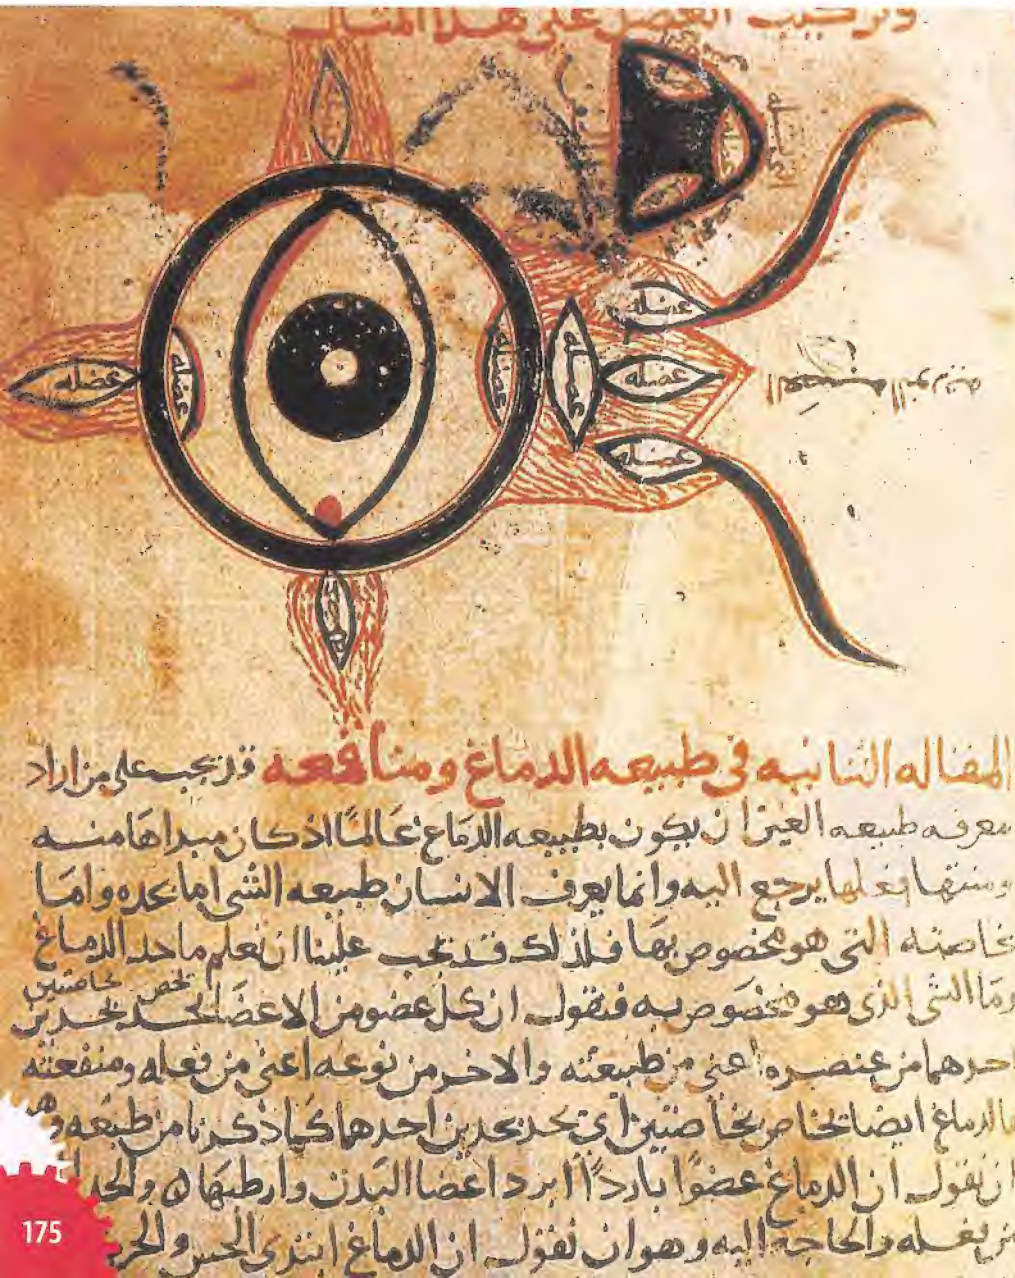 وتركيب العضل على هذا المثال
عضله
عضله
عضله
عضله
عضله
عضله
عضله
عضله
المقاله الثانيه في طبيعه الدماغ ومنافعه قد يجب على من اراد
معرفه طبيعه العين ان يكون بطبيعه الدماغ عالمًا اذ كان مبداها منه
ومنتها فعلها يرجع اليه وانما يعرف الانسان طبيعه الشى اما بحده واما
بخاصته التى هو مخصوص بها فلذلك قد يجب علينا ان نعلم ما حد الدماغ
وما الشى الذى هو مخصوص به فنقول ان كل عضو من الاعضا يحد بحدين
يخص بخاصتين
احدهما من عنصره اعنى من طبيعته والاخر من نوعه اعنى من فعله ومنفعته
فالدماغ ايضا بخاصتين اى يحد بحدين احدهما كما ذكرنا من طبعه وهو
ان نقول ان الدماغ عضوًا باردًا ابرد اعضا البدن وارطبها والحد
من فعله والحاجه اليه وهو ان نقول ان الدماغ ابتدى الحس والحر
175